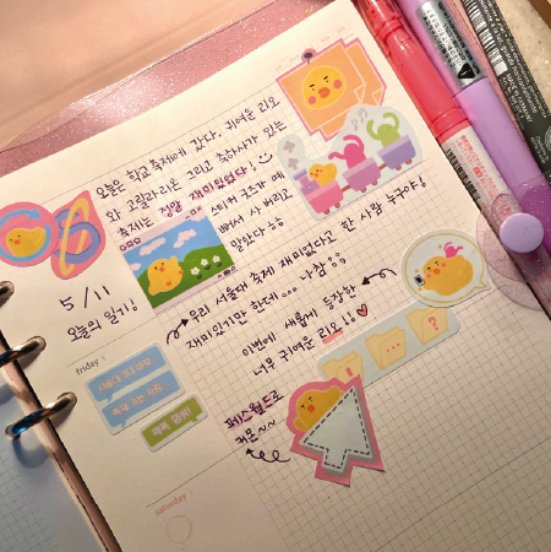 오늘은 학교 축제에 갔다. 귀여운 리오
와 고랄라리온 그리고 축하사가 있는
축제는 정말 재미있었다!
스티커 굿즈가 예
뻐서 사 버리고
말았다 ㅎㅎ
5/11
오늘의 일기!
우리 서울대 축제 재미없다고 한 사람 누구야!
재미있기만 한데... 나참;;
이번에 새롭게 등장한
너무 귀여운 리오!!
friday
페스월드로
귀온~~
saturday
?
...
!